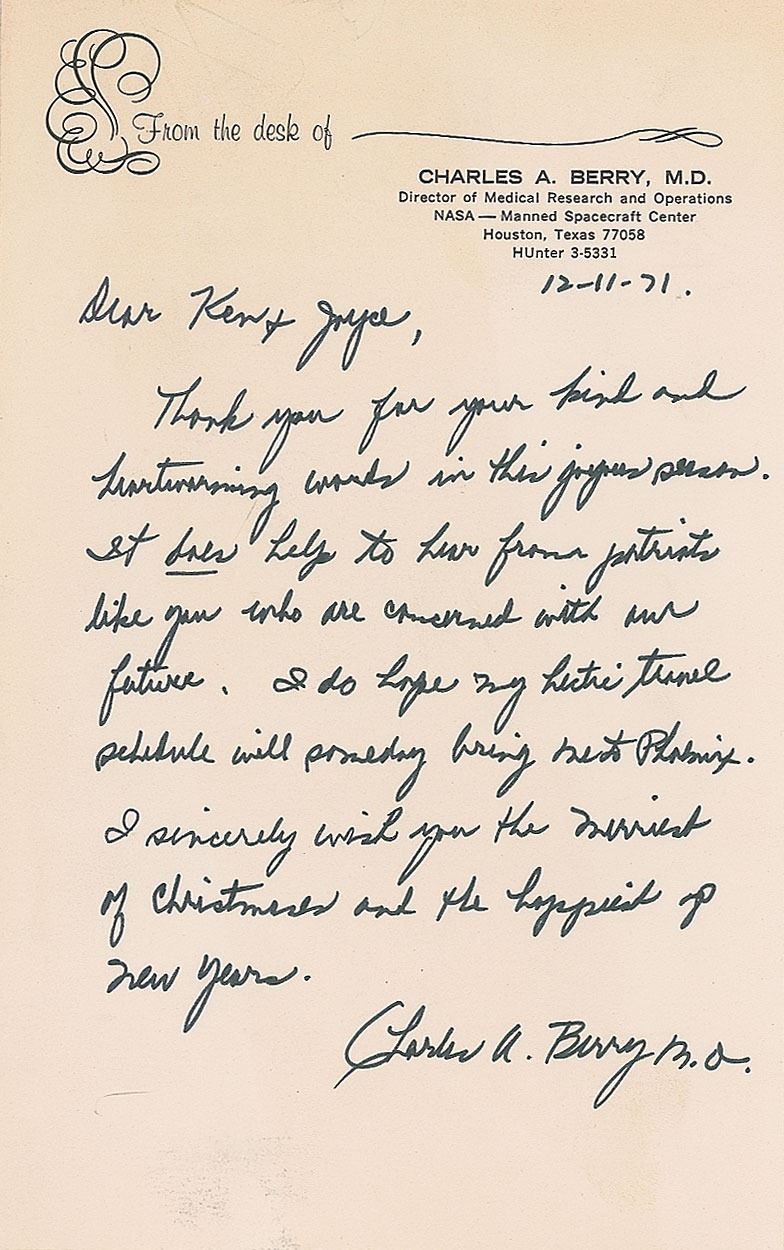 From the desk of
CHARLES A. BERRY, M.D.
Director of Medical Research and Operations
NASA — Manned Spacecraft Center
Houston, Texas 77058
HUnter 3-5331
12-11-71.
Dear Ken & Joyce,
Thank you for your kind and
heartwarming words in this joyous season.
It does help to hear from patriots
like you who are concerned with our
future. I do hope my hectic travel
schedule will someday bring me to Phoenix.
I sincerely wish you the merriest
of Christmases and the happiest of
New Years.
Charles A. Berry M.D.